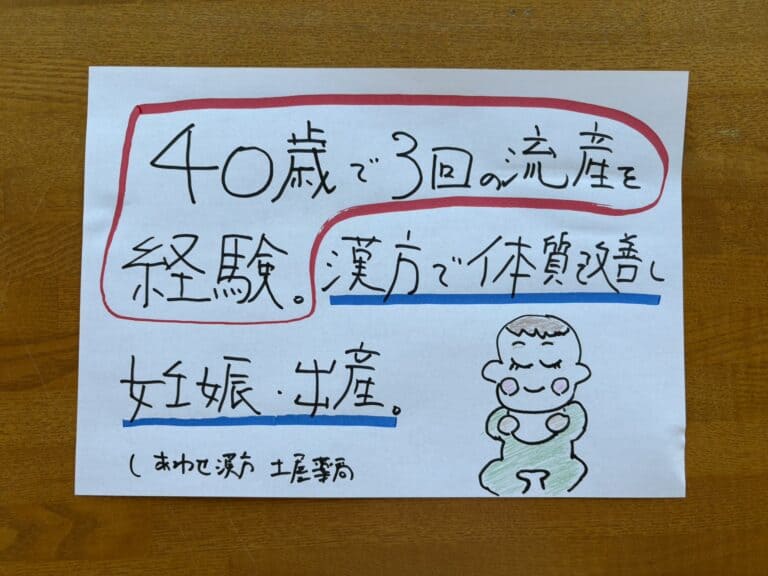 40歳で3回の流産を
経験。漢方で体質改善し
妊娠・出産。
しあわせ漢方 土屋薬局